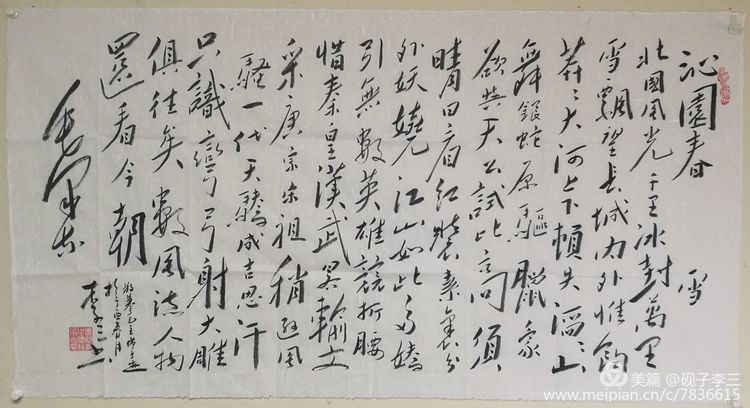 沁園春 雪
北國風光千里冰封萬里
雪飄望長城内外惟餘
莽〻大河上下頓失滔〻山
舞銀蛇原馳臘象
欲與天公試比高須
晴日看紅裝素裹分
外妖嬈江山如此多嬌
引無數英雄競折腰
惜秦皇漢武略輸文
采唐宗宋祖稍遜風
騷一代天驕成吉思汗
只識彎弓射大雕
俱往矣數風流人物
還看今朝
毛澤東
於丁酉春月
李三书
美篇 @砚子李三
www.meipian.cn/c/7836615